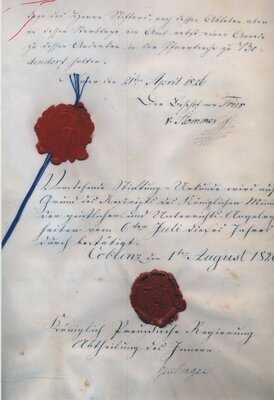 tag des Herrn Stifters, nach dessen Ableben aber
an dessen Sterbtage ein Amt nebst einer
zu dessen Andenken in der Pfarrkirche zu
dendorf halten.
Trier den 21ten April 1826
Der Bischof von Trier
v. Hommer
Vorstehende Stiftungs-Urkunde wird auf
Grund des Rescripts des Königlichen
der geistlichen und Unterrichts Angelegen
heiten vom 6ten Juli dieses Jahres
durch bestätigt.
Coblenz den 1ten August 1826
Königlich Preußische Regierung
Abtheilung des Innern